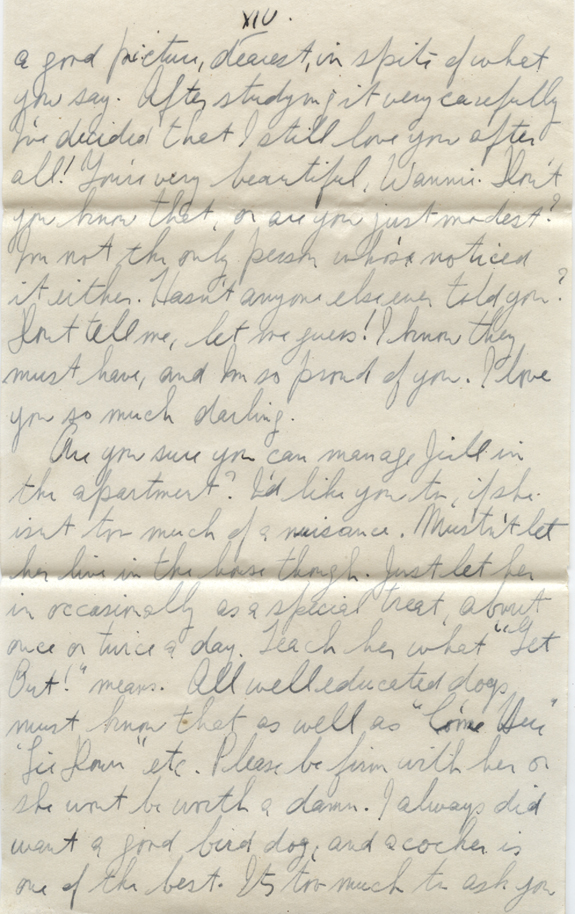 XIV.
a good picture, dearest, in spite of what
you say. After studying it very carefully
I've decided that I still love you after
all! You're very beautiful, Wannie. Don't
you know that, or are you just modest?
I'm not the only person who's noticed
it either. Hasn't anyone else ever told you?
Don't tell me, let me guess! I know they
must have, and I'm so proud of you. I love
you so much darling.
Are you sure you can manage Jill in
the apartment? I'd like you to, if she
isn't too much of a nuisance. Mustn't let
her live in the house though. Just let her
in occasionally as a special treat, about
once or twice a day. Teach her what "Get
Out!" means. All well educated dogs
must know that as well as "Come Here"
"Lie Down" etc. Please be firm with her or
she wont be worth a damn. I always did
want a good bird dog, and a cocker is
one of the best. It's too much to ask you